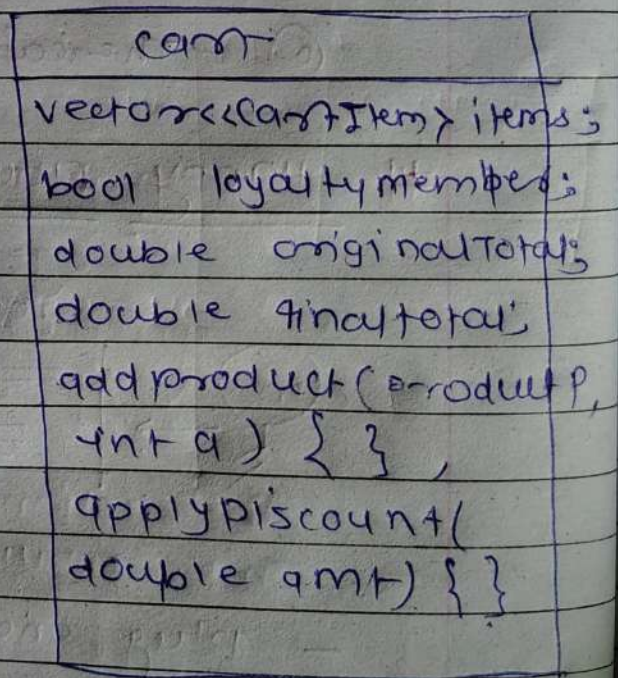 Cart
vector<<CartItem> items;
bool loyaltymember;
double originalTotal;
double finaltotal;
addproduct(Product P,
int q) { } ,
applyDiscount(
double amt) { }